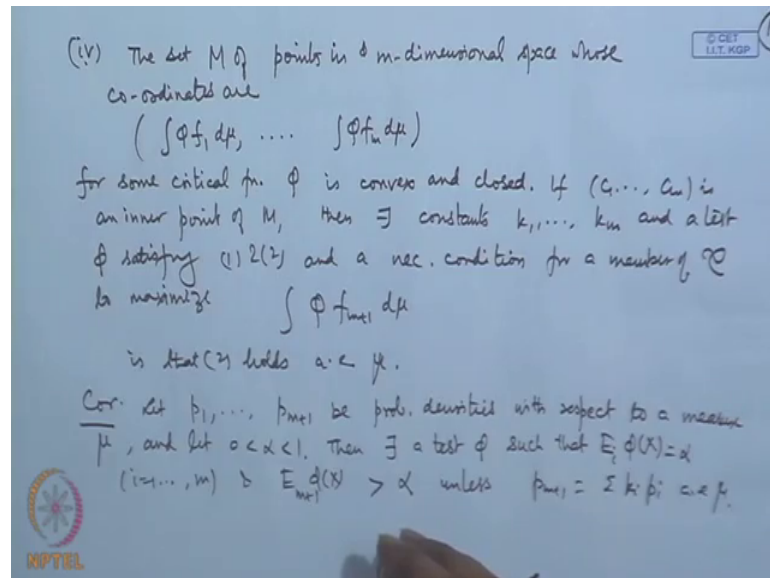 © CET
I.I.T. KGP
(iv) The set M of points in m-dimensional space whose
co-ordinates are
( ∫ φ f₁ dμ, .... ∫ φ fₘ dμ )
for some critical fn. φ is convex and closed. If (c₁..., cₘ) is
an inner point of M, then ∃ constants k₁,..., kₘ and a test
φ satisfying (1) & (2) and a nec. condition for a member of 𝒞
to maximize ∫ φ fₘ₊₁ dμ
is that (2) holds a.e μ.
Cor. Let p₁,..., pₘ₊₁ be prob. densities with respect to a measure
μ, and let 0<α<1. Then ∃ a test φ such that Eᵢ φ(X) = α
(i=1..., m) & Eₘ₊₁ φ(X) > α unless pₘ₊₁ = Σ kᵢ pᵢ a.e μ.
NPTEL